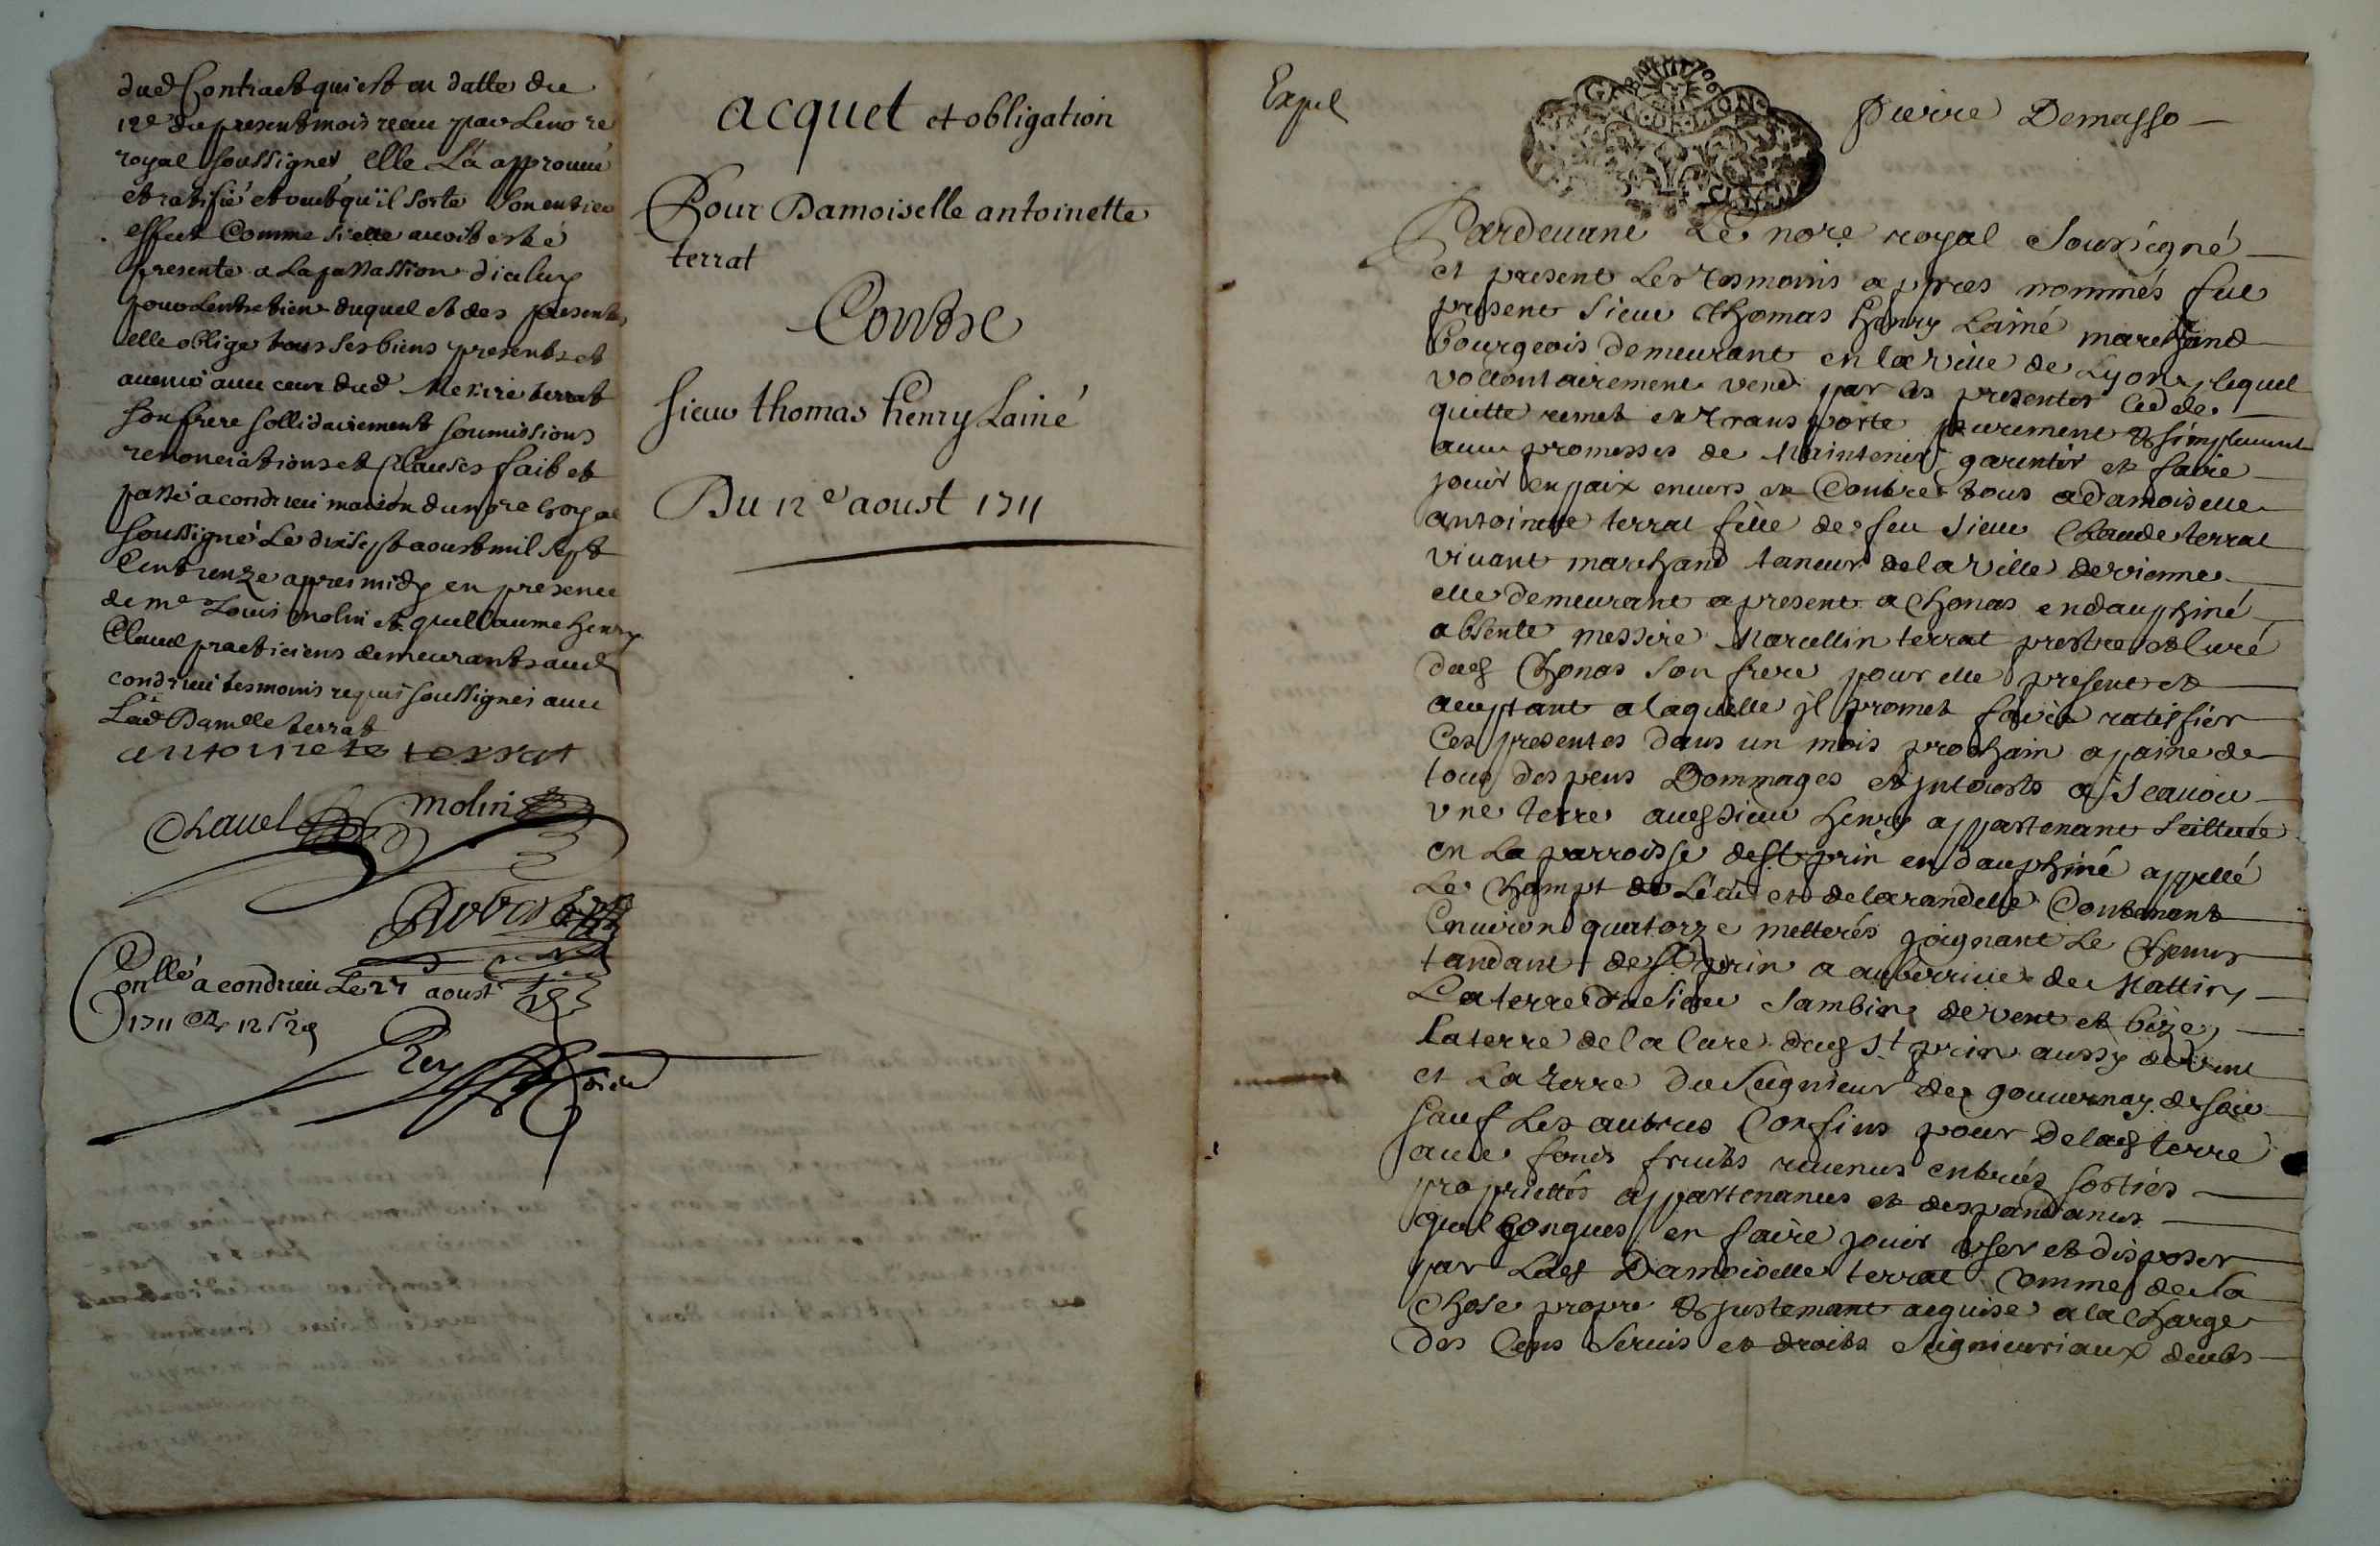 dud Contract qui est en datte du
12e du present mois receu par Le no re
royal soussigner elle La approuué
et ratifié et veut qu'il sorte son entier
effect Comme si elle auoit esté
presente a La passassion d'icelluy
pour Lentretien duquel et des presentes
elle oblige tous ses biens presents et
auenir auec ceux dud Messire terrat
son frere sollidairement soumissions
renonciations et Clauses fait et
passé a condrieu maison du nore Royal
soussigné Le dixsept aoust mil sept
Cent unze apres midy en presence
de me Louis molin et guillaume henry
Clauel practiciens demeurants aud
condrieu tesmoins requis soussignes auec
Lad Damlle terrat
antoinete terrat
Chauel molin
Conllé a condrieu Le 27 aoust
1711
Rey
acquet et obligation
Pour Damoiselle antoinette
terrat
Contre
sieur thomas henry Lainé
Du 12e aoust 1711
Expel
GENERAL
LION
Pierre Demasso
Pardeuant Le nore royal Soussigné
et present Les tesmoins apres nommés fut
present sieur Thomas Henry Lainé marchand
Bourgeois demeurant en la Ville de Lyon, lequel
vollontairement vend par les presentes Cedde
quitte remet et transporte purement & simplement
auec promesses de Maintenir, garentir et faire
jouir en paix enuers et Contre tous a damoiselle
antoinette terrat fille de feu sieur Claude terrat
viuant marchand taneur de la Ville de vienne
elle demeurant a present a Chonas en dauphiné
absente messire Marcellin terrat prestre et Curé
dud Chonas son frere pour elle present et
acceptant a laquelle jl promet faire ratiffier
Ces presentes dans un mois prochain a paine de
tous despens Dommages et jnterests a scauoir
vne terre aud sieur Henry appartenant scittuée
en La parroisse de st prin en dauphiné appellé
Le Champt de Léau et de la randelle Contenant
Enuiron quatorze metterés joignant Le Chemin
tandant de st prin a auberriue de Mattin
La terre du sieur Sambin de vent et bize,
la terre de la Cure dud st prin aussy de vent
et La terre du Seigneur de gouuernay de soir
sauf Les autres Confins pour de lad terre
auec fonds fruits reuenus entrées sorties
propriettés appartenances et despandances
quelconques en faire jouir vser et disposer
par Lad Damoiselle terrat Comme de sa
Chose propre & justemant acquise a la Charge
des Cens Seruis et droits Seignieuriaux deubs